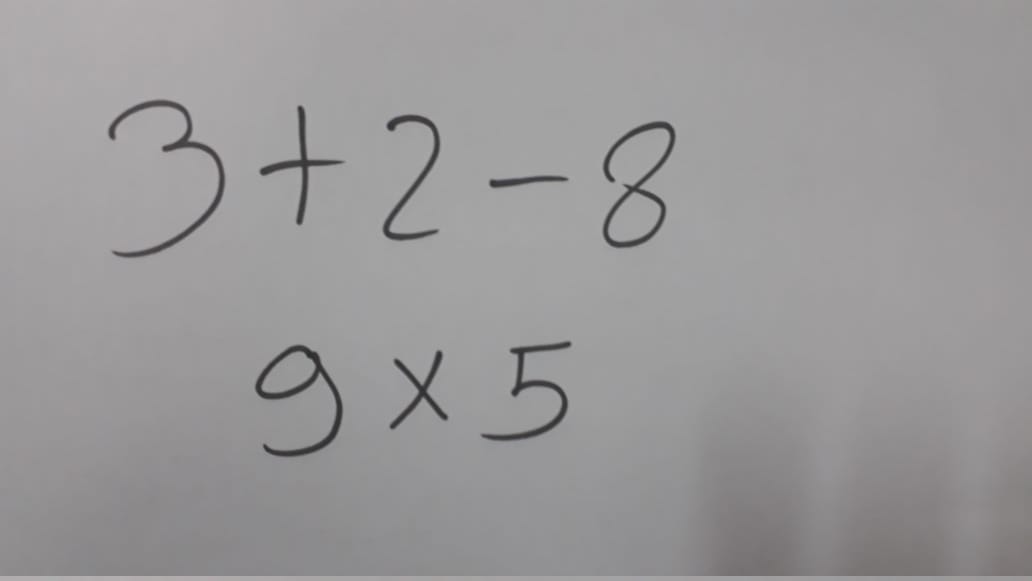 3+2-8
9×5